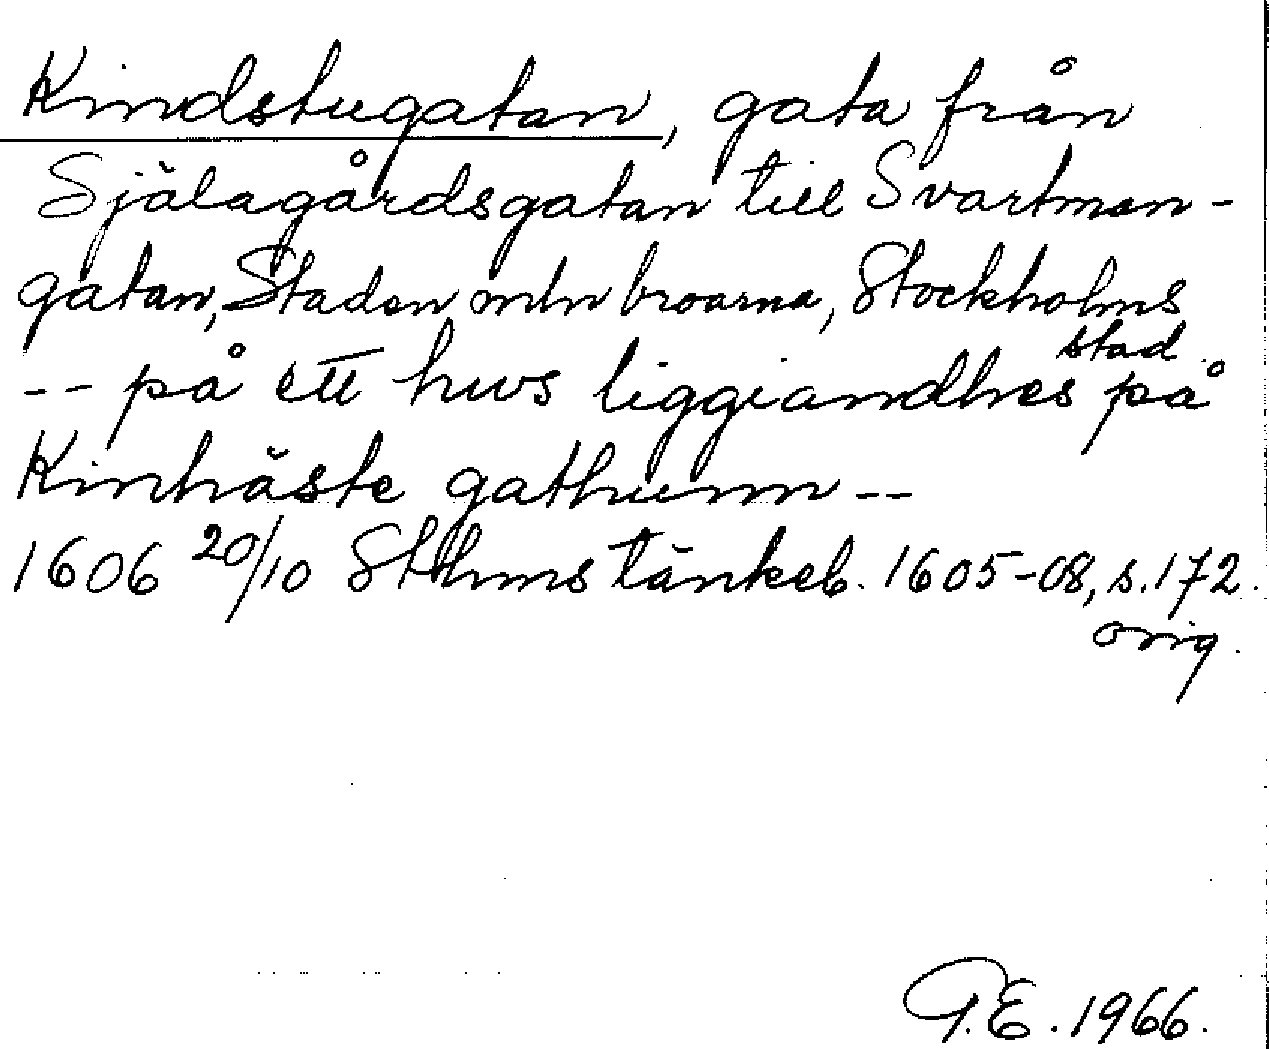 Kindstugatan, gata från
Själagårdsgatan till Svartman-
gatan, Staden mln broarna, Stockholms
stad.
-- på ett hws liggiandhes på
Kinhäste gathunn --
1606 20/10 Sthms tänkeb. 1605-08, s. 172.
orig.
G.E. 1966.